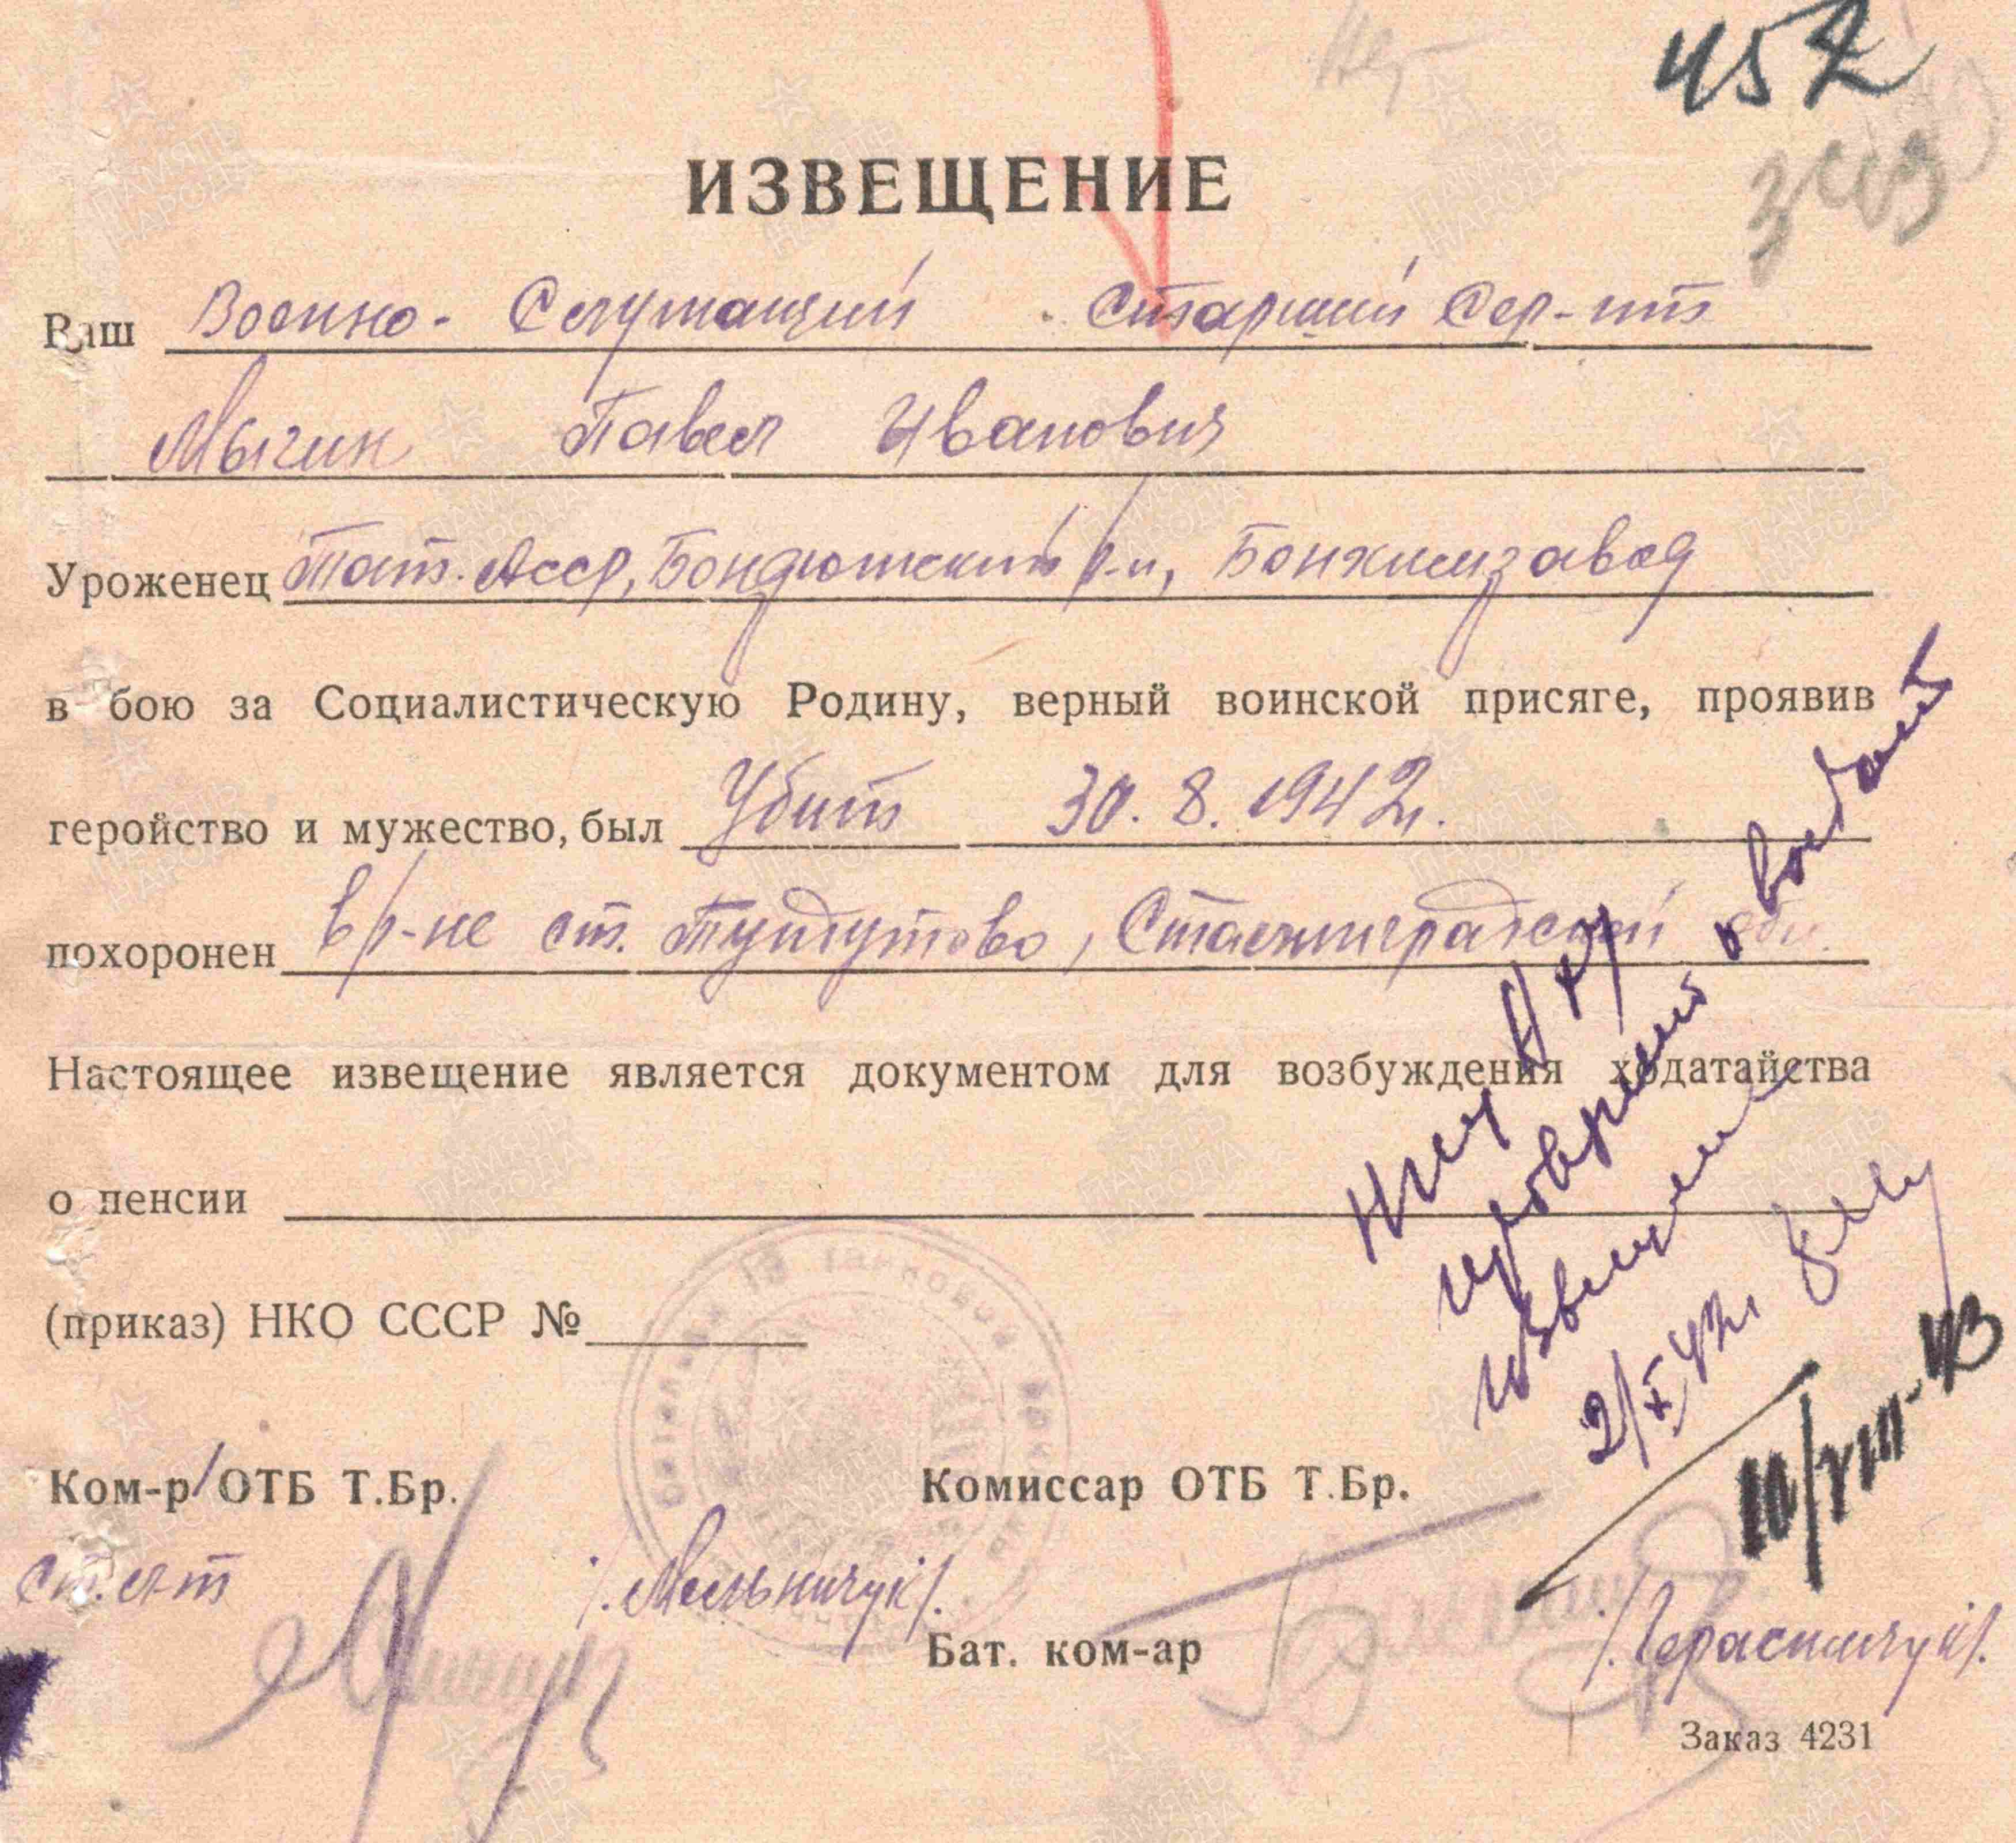 457
ИЗВЕЩЕНИЕ
Ваш Военно-Служащий Старший Сер-нт
Мычин Павел Иванович
Уроженец Тат. АССР, Бондюжский р-н, Бонхимзавод
в бою за Социалистическую Родину, верный воинской присяге, проявив
геройство и мужество, был Убит 30.8.1942г.
похоронен в р-не ст. Тундутово, Сталинградской обл.
Настоящее извещение является документом для возбуждения ходатайства
о пенсии
извещение
2/X 42г.
(приказ) НКО СССР №
10/VIII-43
Ком-р ОТБ Т.Бр. Комиссар ОТБ Т.Бр.
ст. л-т /Мельничук/.
Бат. ком-ар /Герасимчук/.
Заказ 4231
ПАМЯТЬ НАРОДА